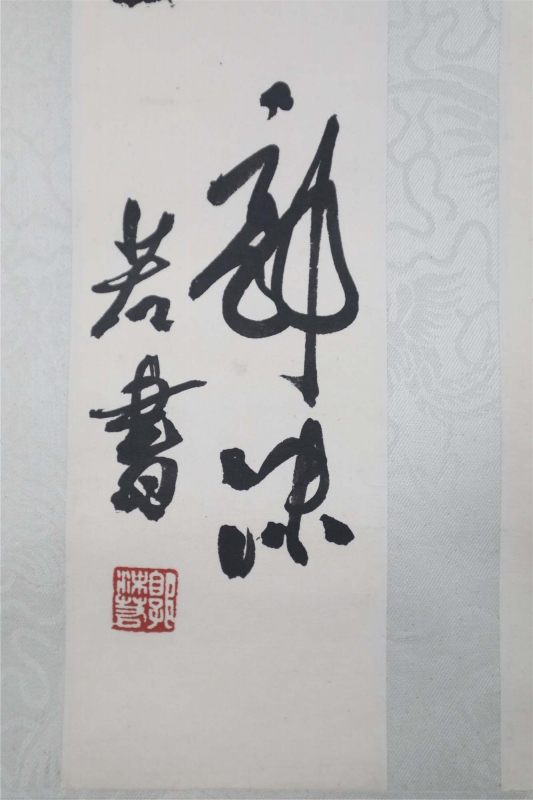 郭沫
若書
郭沫若